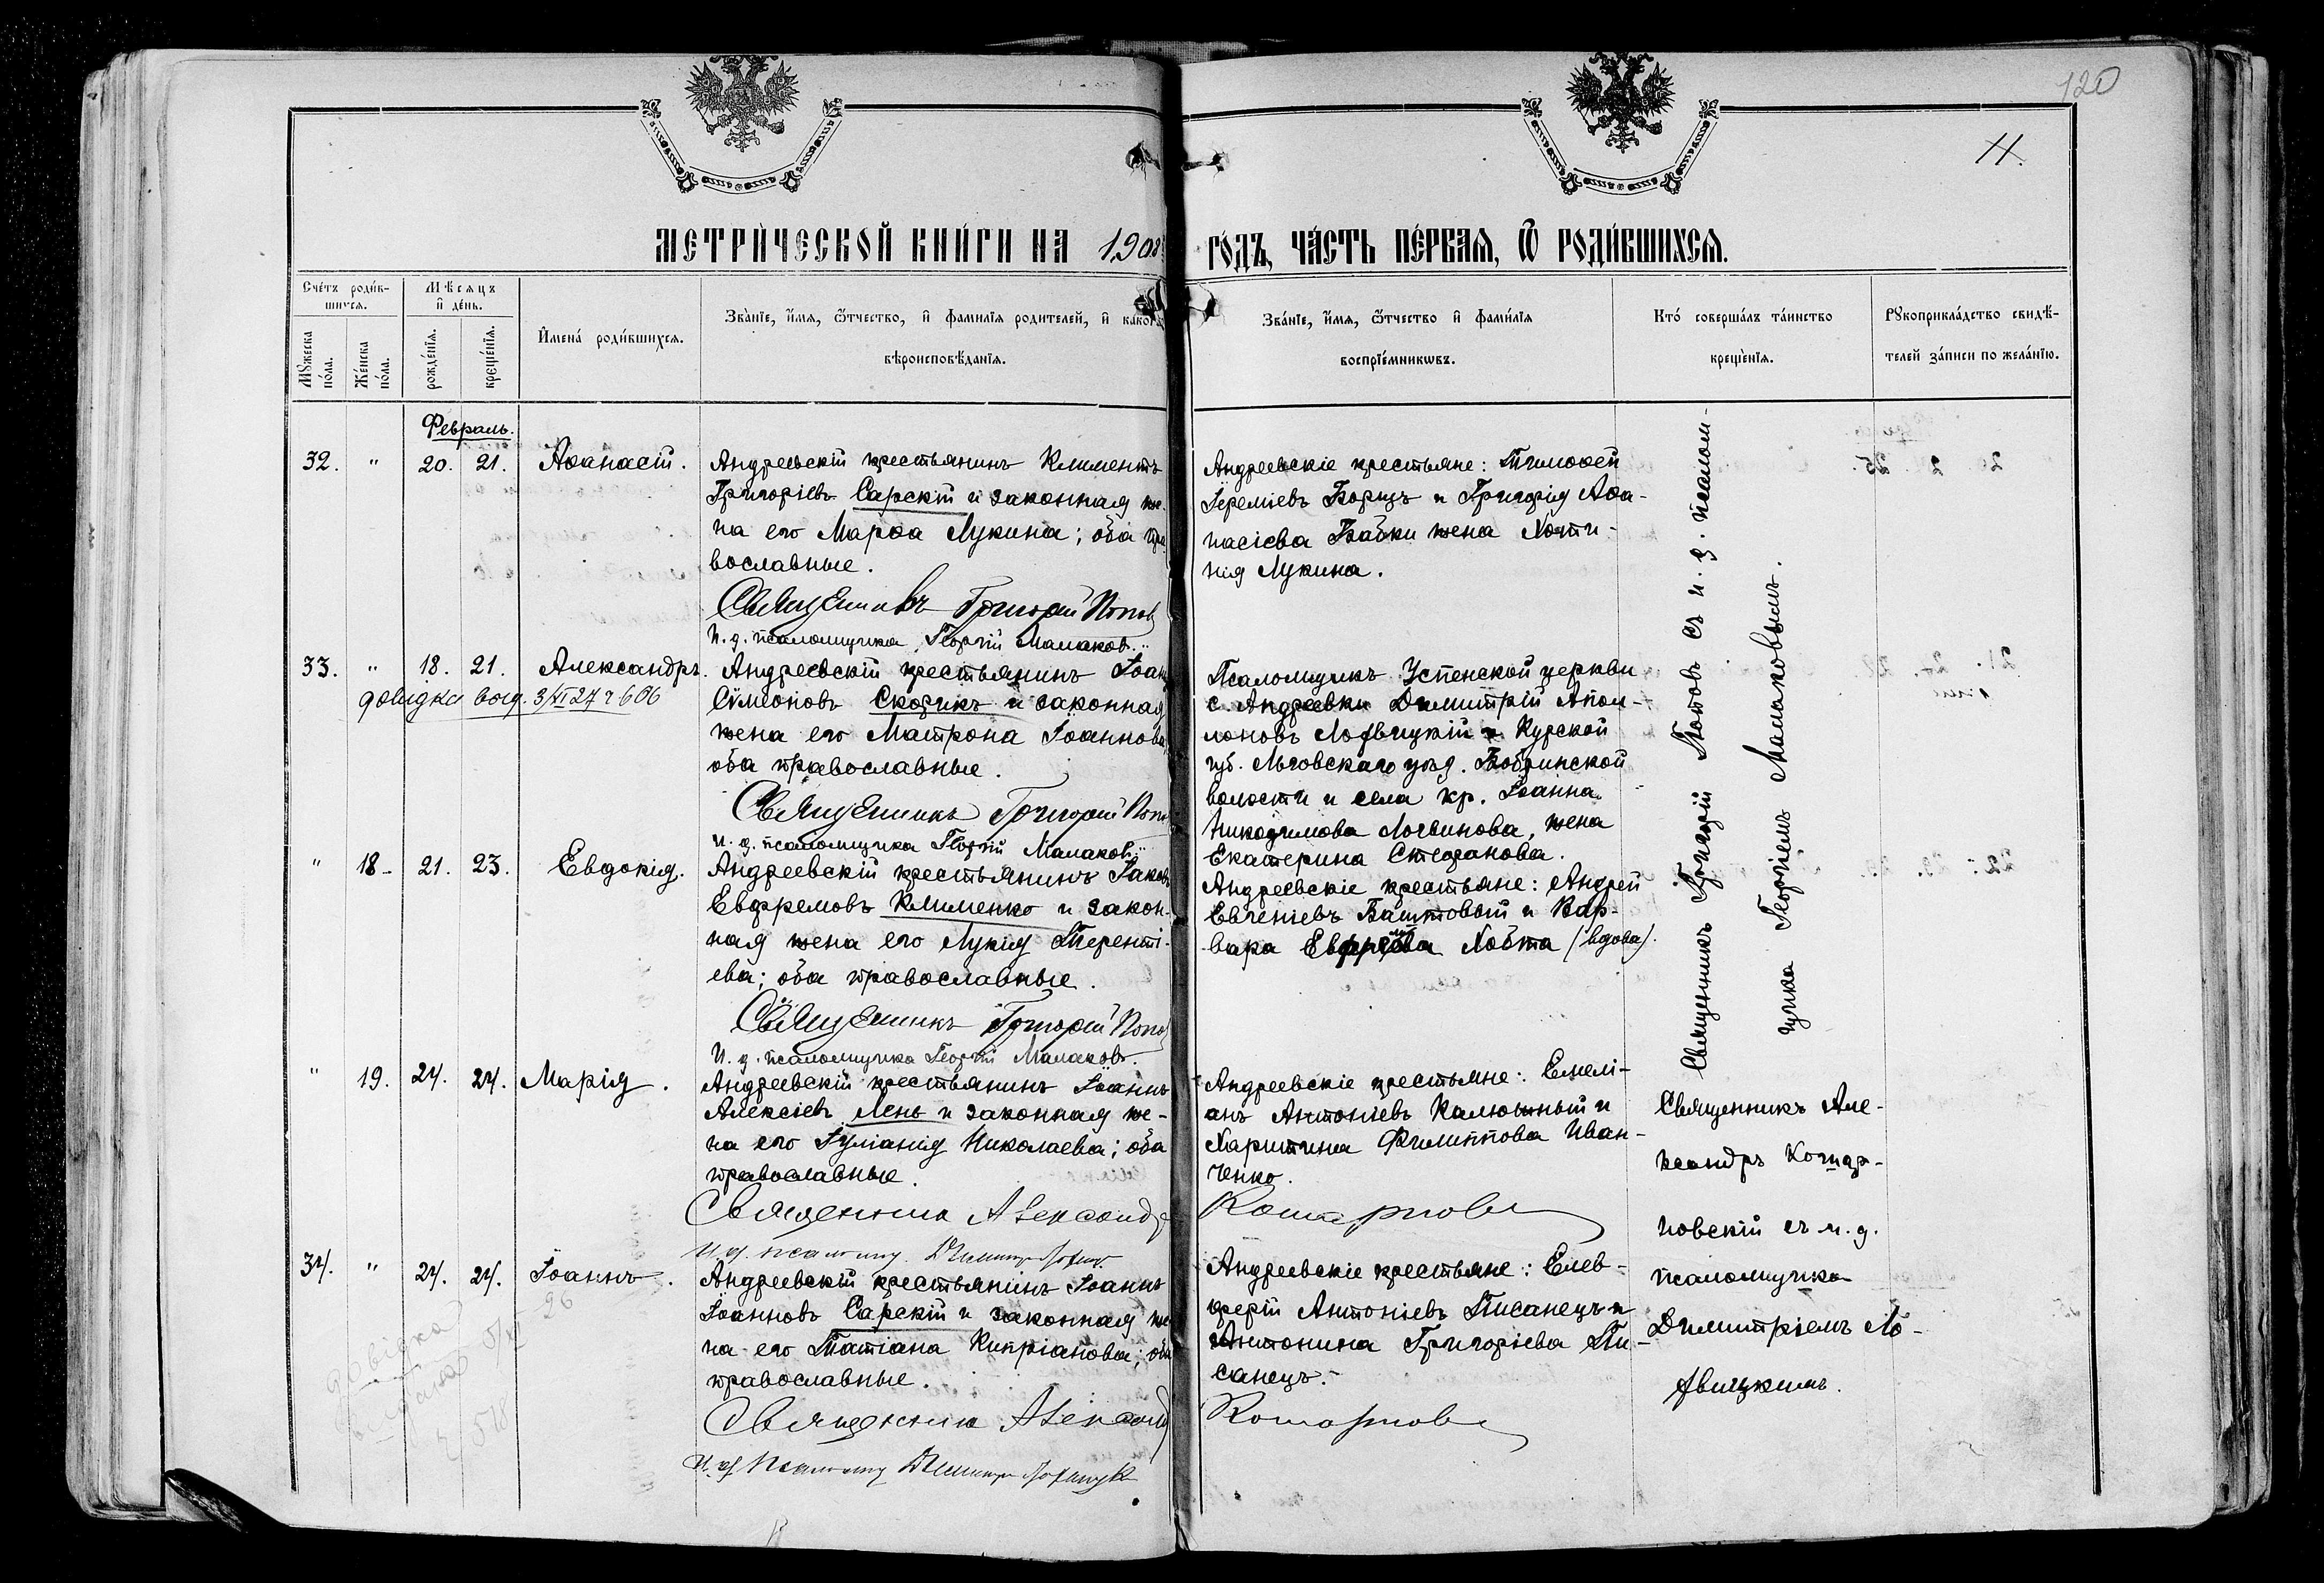 120
11.
МЕТРИЧЕСКОЙ КНИГИ НА 1908
ГОДЪ, ЧАСТЬ ПЕРВАЯ, Ѿ РОДИВШИХСЯ.
Счетъ родив-
шихся.
Мѣсяцъ
и день.
Мужеска
пола.
Женска
пола.
рожденія.
крещенія.
Имена родившихся.
Званіе, имя, ѿтчество, и фамилія родителей, и какого
вѣроисповѣданія.
Званіе, имя, ѿтчество и фамилія
воспріемниковъ.
Кто совершалъ таинство
крещенія.
Рукоприкладство свидѣ-
телей записи по желанію.
Февраль.
32. " 20. 21. Аѳанасій.
Андреевскій крестьянинъ Климентъ
Григоріевъ Сарскій и законная же-
на его Марѳа Лукина; оба пра-
вославные.
Священникъ Григорій Попов
И. д. псаломщика Георгій Малаковъ.
Андреевскіе крестьяне: Тимоѳей
Іереміевъ Борщъ и Григорія Аѳа-
насіева Бабки жена Хоти-
нія Лукина.
33. " 18. 21. Александръ.
довідка вид. 3/VI 27 г 606
Андреевскій крестьянинъ Іоан
Сѵмеоновъ Скорикъ и законная
жена его Матрона Іоаннова
оба православные.
Священникъ Григорій Попо
И. д. псаломщика Георгій Малаковъ
Псаломщикъ Успенской церкви
с. Андреевки Димитрій Апол-
лоновъ Лофвицкій и Курской
губ. Льговскаго уѣзд. Бобринской
волости и села кр. Іоанна
Никодимова Логвинова, жена
Екатерина Стефанова.
" 18. 21. 23. Евдокія.
Андреевскій крестьянинъ Іаковъ
Евфремовъ Клименко и закон-
ная жена его Лукія Теренті-
ева; оба православные.
Священникъ Григорій Попо
И. д. псаломщика Георгій Малаковъ.
Андреевскіе крестьяне: Андрей
Евгеніевъ Баштовый и Вар-
вара Хобта (вдова).
Священникъ Григорій Поповъ съ и. д. псалом-
щика Георгіемъ Малаковымъ.
" 19. 24. 24. Марія.
Андреевскій крестьянинъ Іоаннъ
Алексіевъ Лень и законная же-
на его Іуліанія Николаева; оба
православные.
Священник Александр
И. д. псаломщ. Димитр
Андреевскіе крестьяне: Емелі-
анъ Антоніевъ Калюжный и
Харитина Филиппова Иван-
ченко.
Священникъ Але-
ксандръ
новскій съ и. д.
псаломщика
Димитріемъ Ло-
фвицкимъ.
34. " 24. 24. Іоаннъ.
довідка
видана 5/VI 26
ч 518
Андреевскій крестьянинъ Іоаннъ
Іоанновъ Сарскій и законная же
на его Татіана Кипріанова; оба
православные.
Священник Александ
И. д. псаломщ Димитр
Андреевскіе крестьяне: Елев-
ферій Антоніевъ Писанецъ и
Антонина Григоріева Пи-
санецъ.